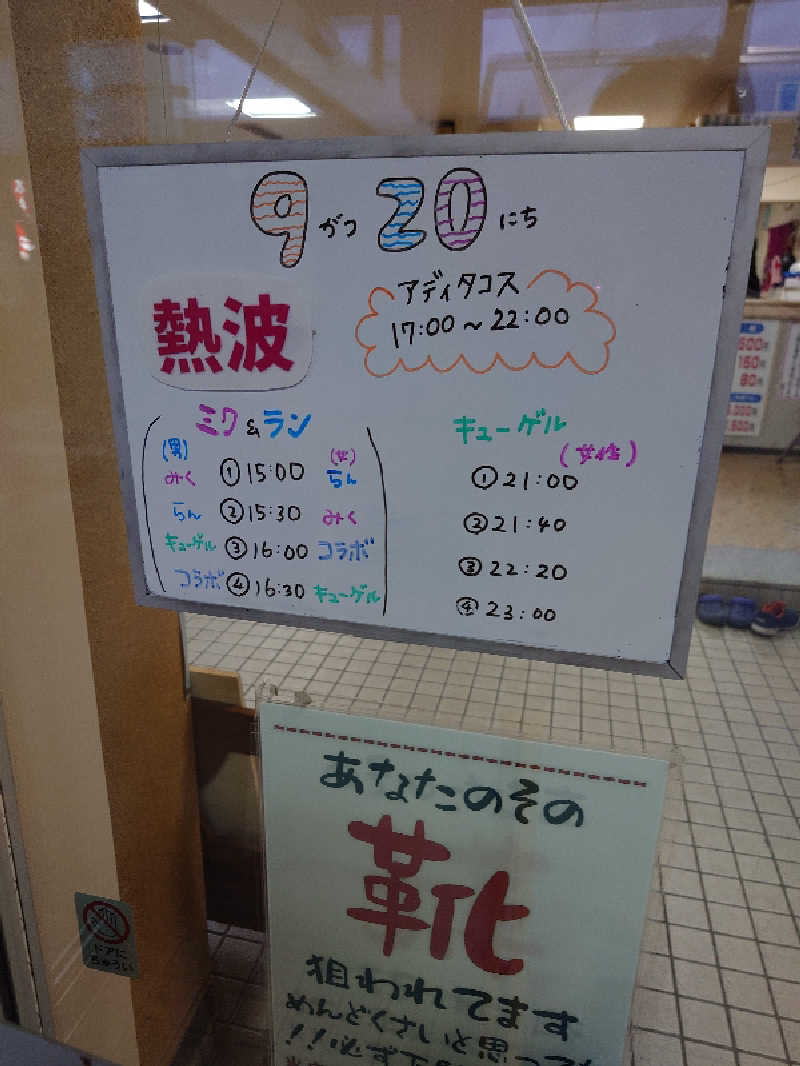 9がつ20にち
熱波
アディタコス
17:00～22:00
ミク&ラン
(男)
(女)
みく ①15:00 らん
らん ②15:30 みく
キューゲル ③16:00 コラボ
コラボ ④16:30 キューゲル
キューゲル
(女性)
①21:00
②21:40
③22:20
④23:00
150円
80円
あなたのその
靴
狙われてます
めんどくさいと思って
!!必ず下
ドアに
ちゅうい